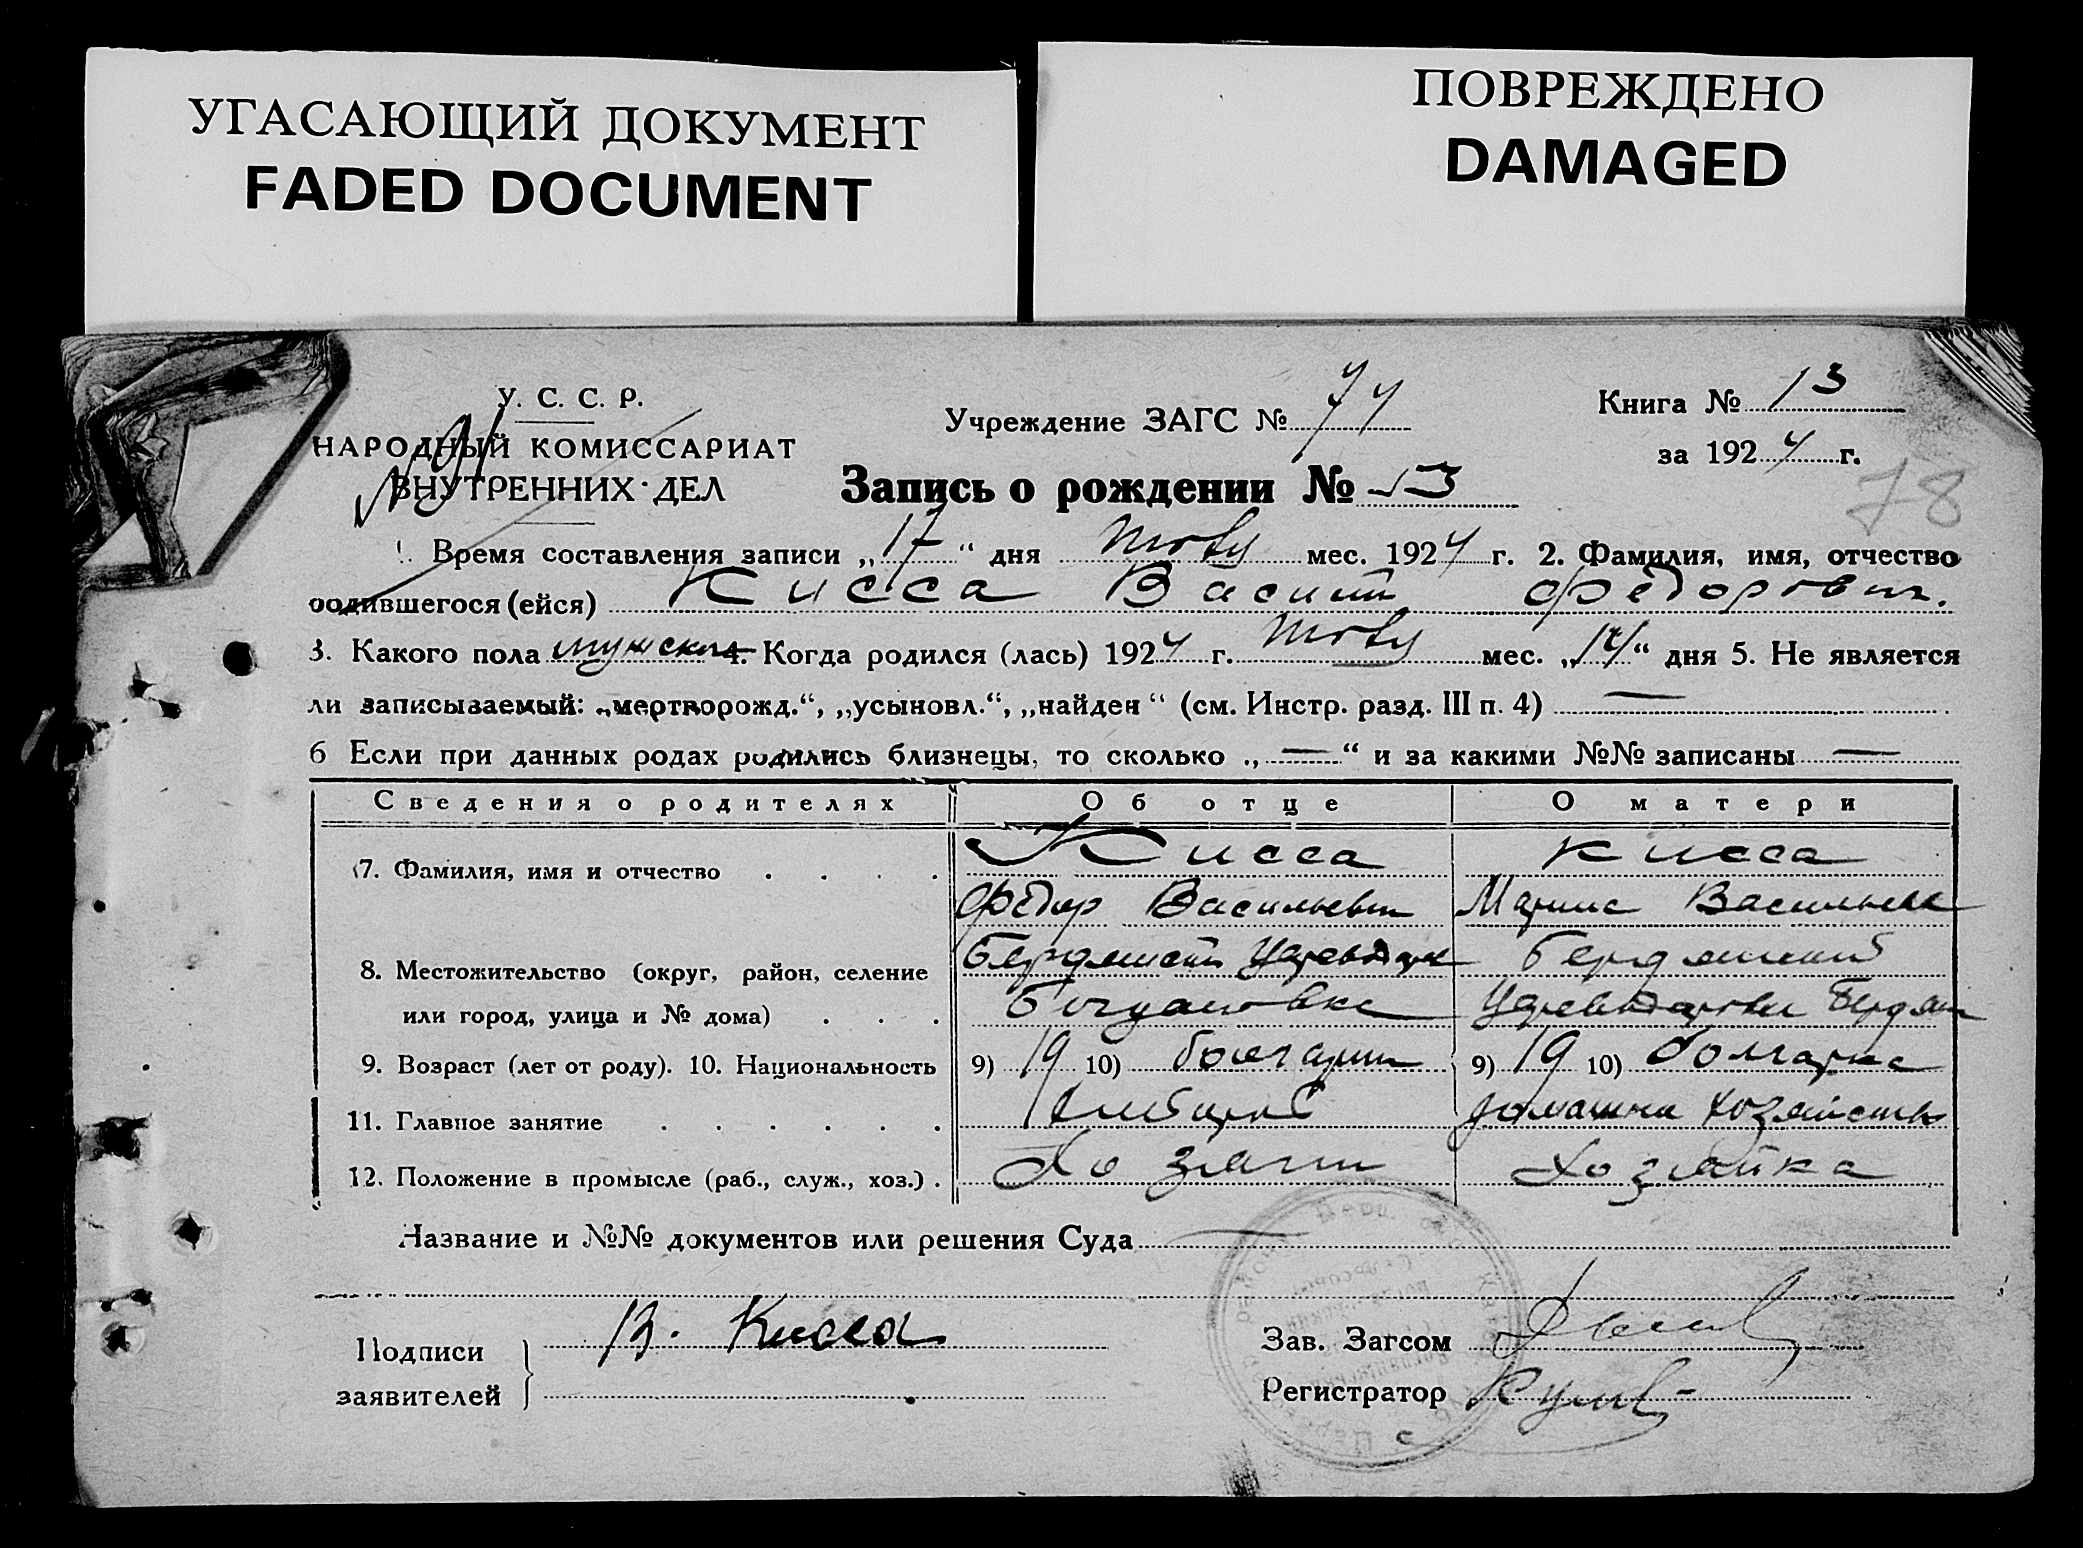 УГАСАЮЩИЙ ДОКУМЕНТ
FADED DOCUMENT
ПОВРЕЖДЕНО
DAMAGED
У. С. С. Р.
НАРОДНЫЙ КОМИССАРИАТ
ВНУТРЕННИХ ДЕЛ
№ 91
Учреждение ЗАГС № 74
Книга № 13
за 1924 г.
78
Запись о рождении № 13
1. Время составления записи „17“ дня мес. 1924 г. 2. Фамилия, имя, отчество
родившегося (ейся) Кисса Василий Федорович.
3. Какого пола мужской 4. Когда родился (лась) 1924 г. мес. „14“ дня 5. Не является
ли записываемый: „мертворожд.“, „усыновл.“, „найден“ (см. Инстр. разд. III п. 4) —
6 Если при данных родах родились близнецы, то сколько „—“ и за какими №№ записаны —
Сведения о родителях Об отце О матери
7. Фамилия, имя и отчество . . . . Кисса Кисса
Федор Василиевич Мария Васильев
8. Местожительство (округ, район, селение Бердянский Бердянский
или город, улица и № дома) . . .
9. Возраст (лет от роду). 10. Национальность 9) 19 10) болгарин 9) 19 10) болгарка
11. Главное занятие . . . . . . Хлебороб домашни хозяйство
12. Положение в промысле (раб., служ., хоз.) . Хозяин Хозяйка
Название и №№ документов или решения Суда —
Подписи
заявителей
В. Кисса
Зав. Загсом
Регистратор